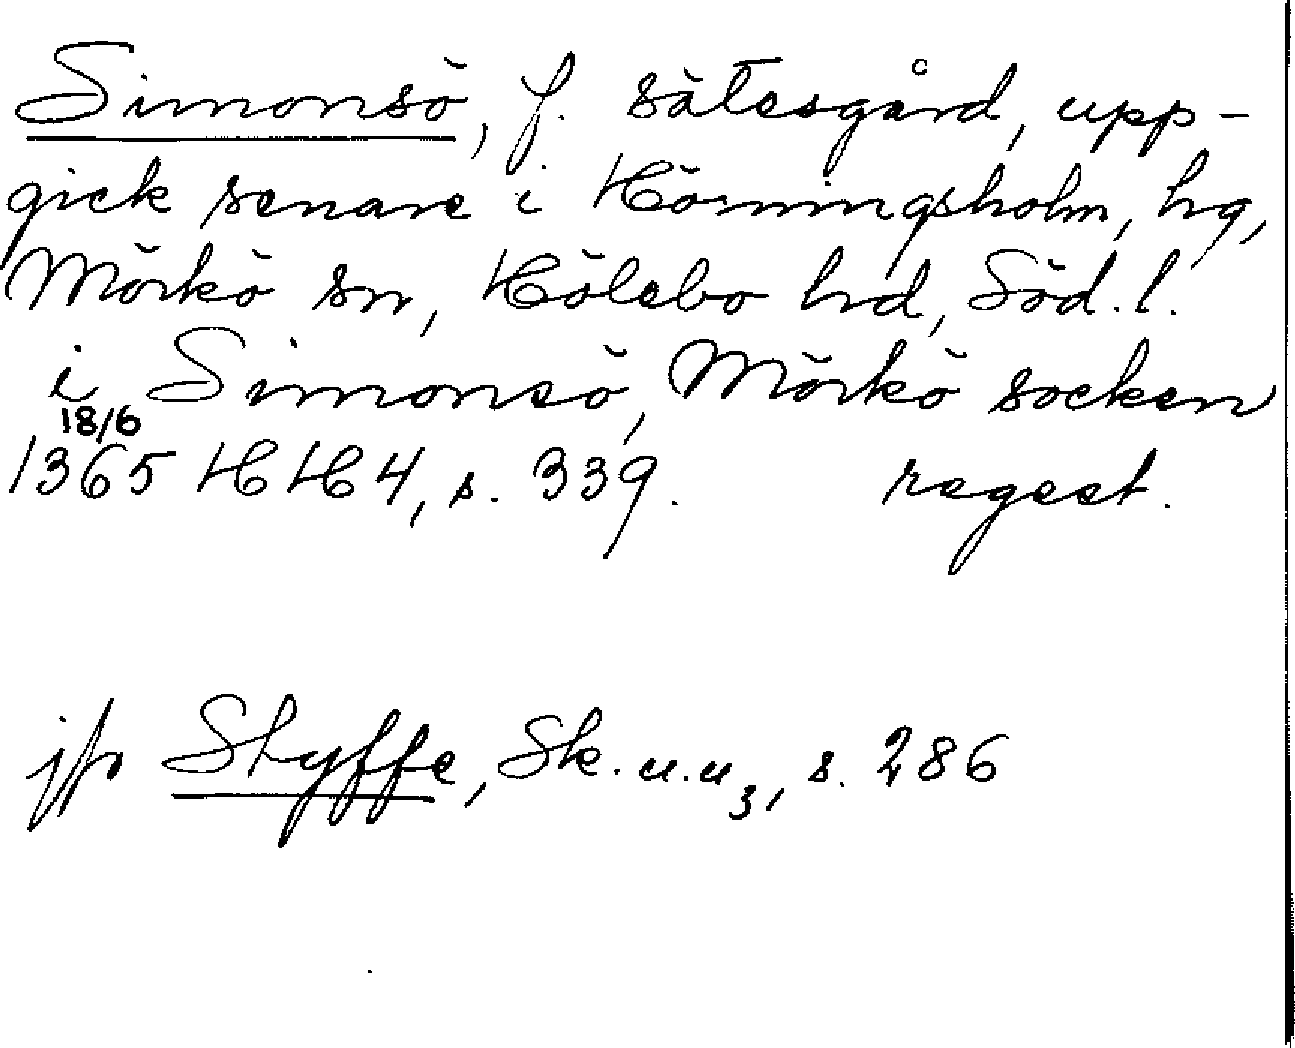 Simonsö, f. sätesgård, upp-
gick senare i Hörningsholm, hg,
Mörkö sn, Hölebo hd, Söd. l.
i Simonsö, Mörkö socken
18/6
1365 HH 4, s. 339. regest.
jfr Styffe, Sk. u. u 3, s. 286